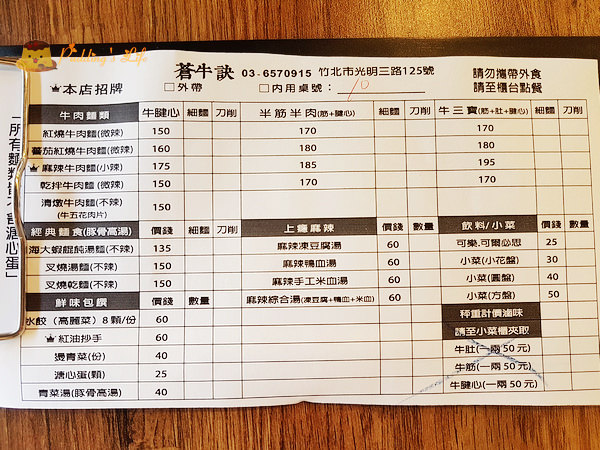 Pudding's Life
蒼牛訣 03-6570915 竹北市光明三路125號 請勿攜帶外食
本店招牌 □外帶 □內用桌號： 10 請至櫃台點餐
牛肉麵類 牛腱心 細麵 刀削 半筋半肉(筋+腱心) 牛三寶(筋+肚+腱心)
紅燒牛肉麵(微辣) 150 170 170
蕃茄紅燒牛肉麵(微辣) 160 180 180
麻辣牛肉麵(小辣) 175 185 195
乾拌牛肉麵(微辣) 150 170 170
清燉牛肉麵(不辣) 150
(牛五花肉片)
經典麵食(豚骨高湯) 價錢 細麵 刀削 上癮麻辣 價錢 數量 飲料/小菜 價錢 數量
海大蝦餛飩湯麵(不辣) 135 麻辣凍豆腐湯 60 可樂.可爾必思 25
叉燒湯麵(不辣) 150 麻辣鴨血湯 60 小菜(小花盤) 30
叉燒乾麵(不辣) 150 麻辣手工米血湯 60 小菜(圓盤) 40
鮮味包饌 價錢 數量 麻辣綜合湯(凍豆腐+鴨血+米血) 60 小菜(方盤) 50
水餃（高麗菜）8顆/份 60 秤重計價滷味
紅油抄手 60 請至小菜櫃夾取
燙青菜(份) 40 牛肚(一兩50元)
溏心蛋(顆) 25 牛筋(一兩50元)
青菜湯(豚骨高湯) 40 牛腱心(一兩50元)
溏心蛋」